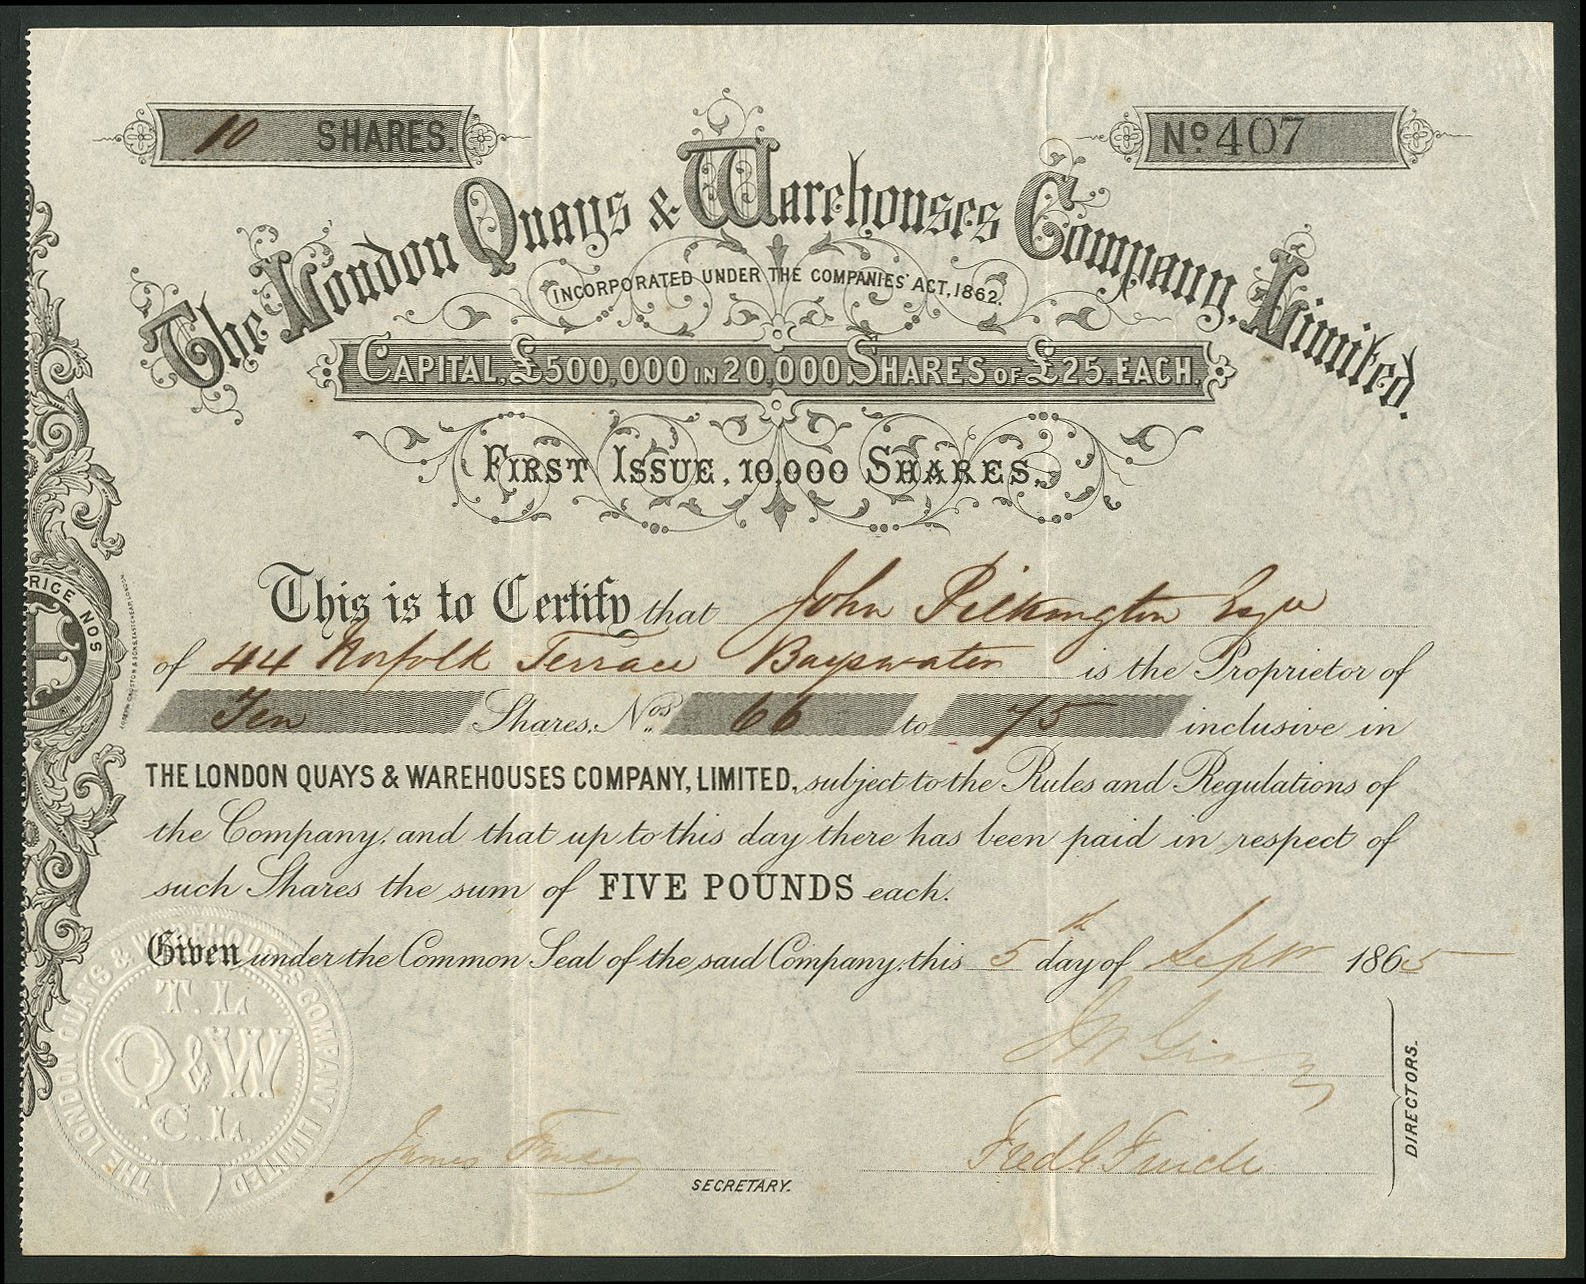 10 SHARES.
No 407
The London Quays & Warehouses Company, Limited.
INCORPORATED UNDER THE COMPANIES' ACT, 1862.
CAPITAL, £500,000 IN 20,000 SHARES OF £25. EACH.
FIRST ISSUE, 10,000 SHARES.
This is to Certify that John Pilkington Esqre
of 44 Norfolk Terrace Bayswater is the Proprietor of
Ten Shares, Nos. 66 to 75 inclusive in
THE LONDON QUAYS & WAREHOUSES COMPANY, LIMITED, subject to the Rules and Regulations of
the Company, and that up to this day there has been paid in respect of
such Shares the sum of FIVE POUNDS each.
Given under the Common Seal of the said Company, this 5th day of Sepr 1865
DIRECTORS.
James
Fred
SECRETARY.
THE LONDON QUAYS & WAREHOUSES COMPANY LIMITED
T. L.
Q & W
C. L.
RICE NOS